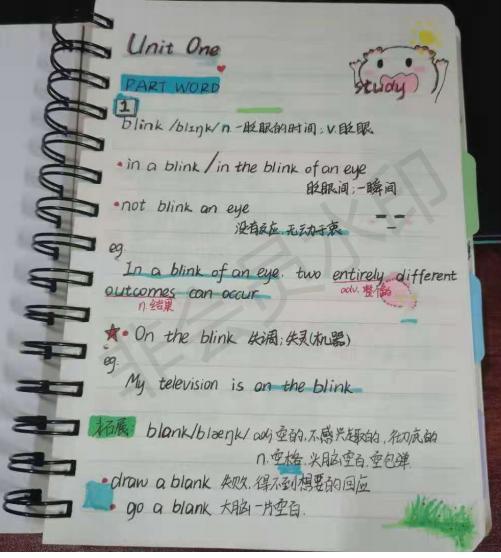 Unit One
study
PART WORD
1
blink /blɪŋk/ n. 一眨眼的时间; v. 眨眼
• in a blink / in the blink of an eye
眨眼间; 一瞬间
• not blink an eye
没有反应, 无动于衷
eg.
In a blink of an eye, two entirely different
adv. 整个的
outcomes can occur
n. 结果
★• On the blink 失调; 失灵(机器)
eg.
My television is on the blink
拓展: blank/blæŋk/ adj 空的, 不感兴趣的, 彻底的
n. 空格, 头脑空白, 空包弹
• draw a blank 失败, 得不到想要的回应
• go a blank 大脑一片空白.
非会员水印